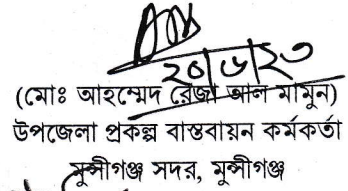 ২০/৬/২৩
(মোঃ আহম্মেদ রেজা আল মামুন)
উপজেলা প্রকল্প বাস্তবায়ন কর্মকর্তা
মুন্সীগঞ্জ সদর, মুন্সীগঞ্জ